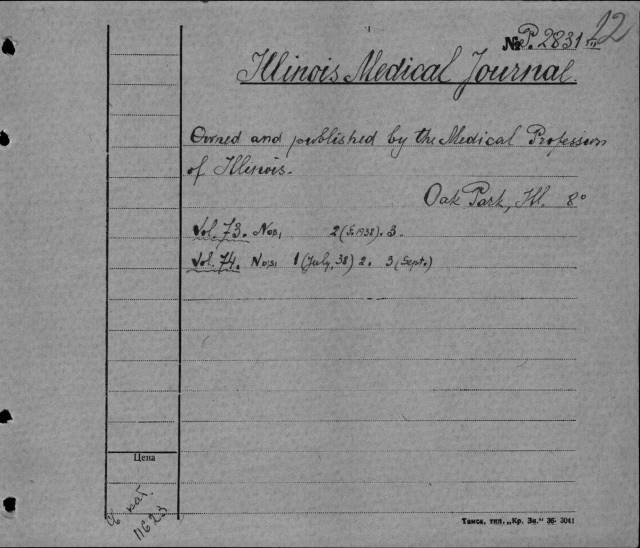 № P. 2831 22
Illinois Medical Journal.
Owned and published by the Medical Profession
of Illinois.
Oak Park, Ill. 8°
Vol. 73. Nos. 2 (F. 1938). 3.
Vol. 74. Nos. 1 (July, 38) 2. 3 (Sept.)
Цена
кат.
11623
Томск, тип. „Кр. Зн." 36- 3041